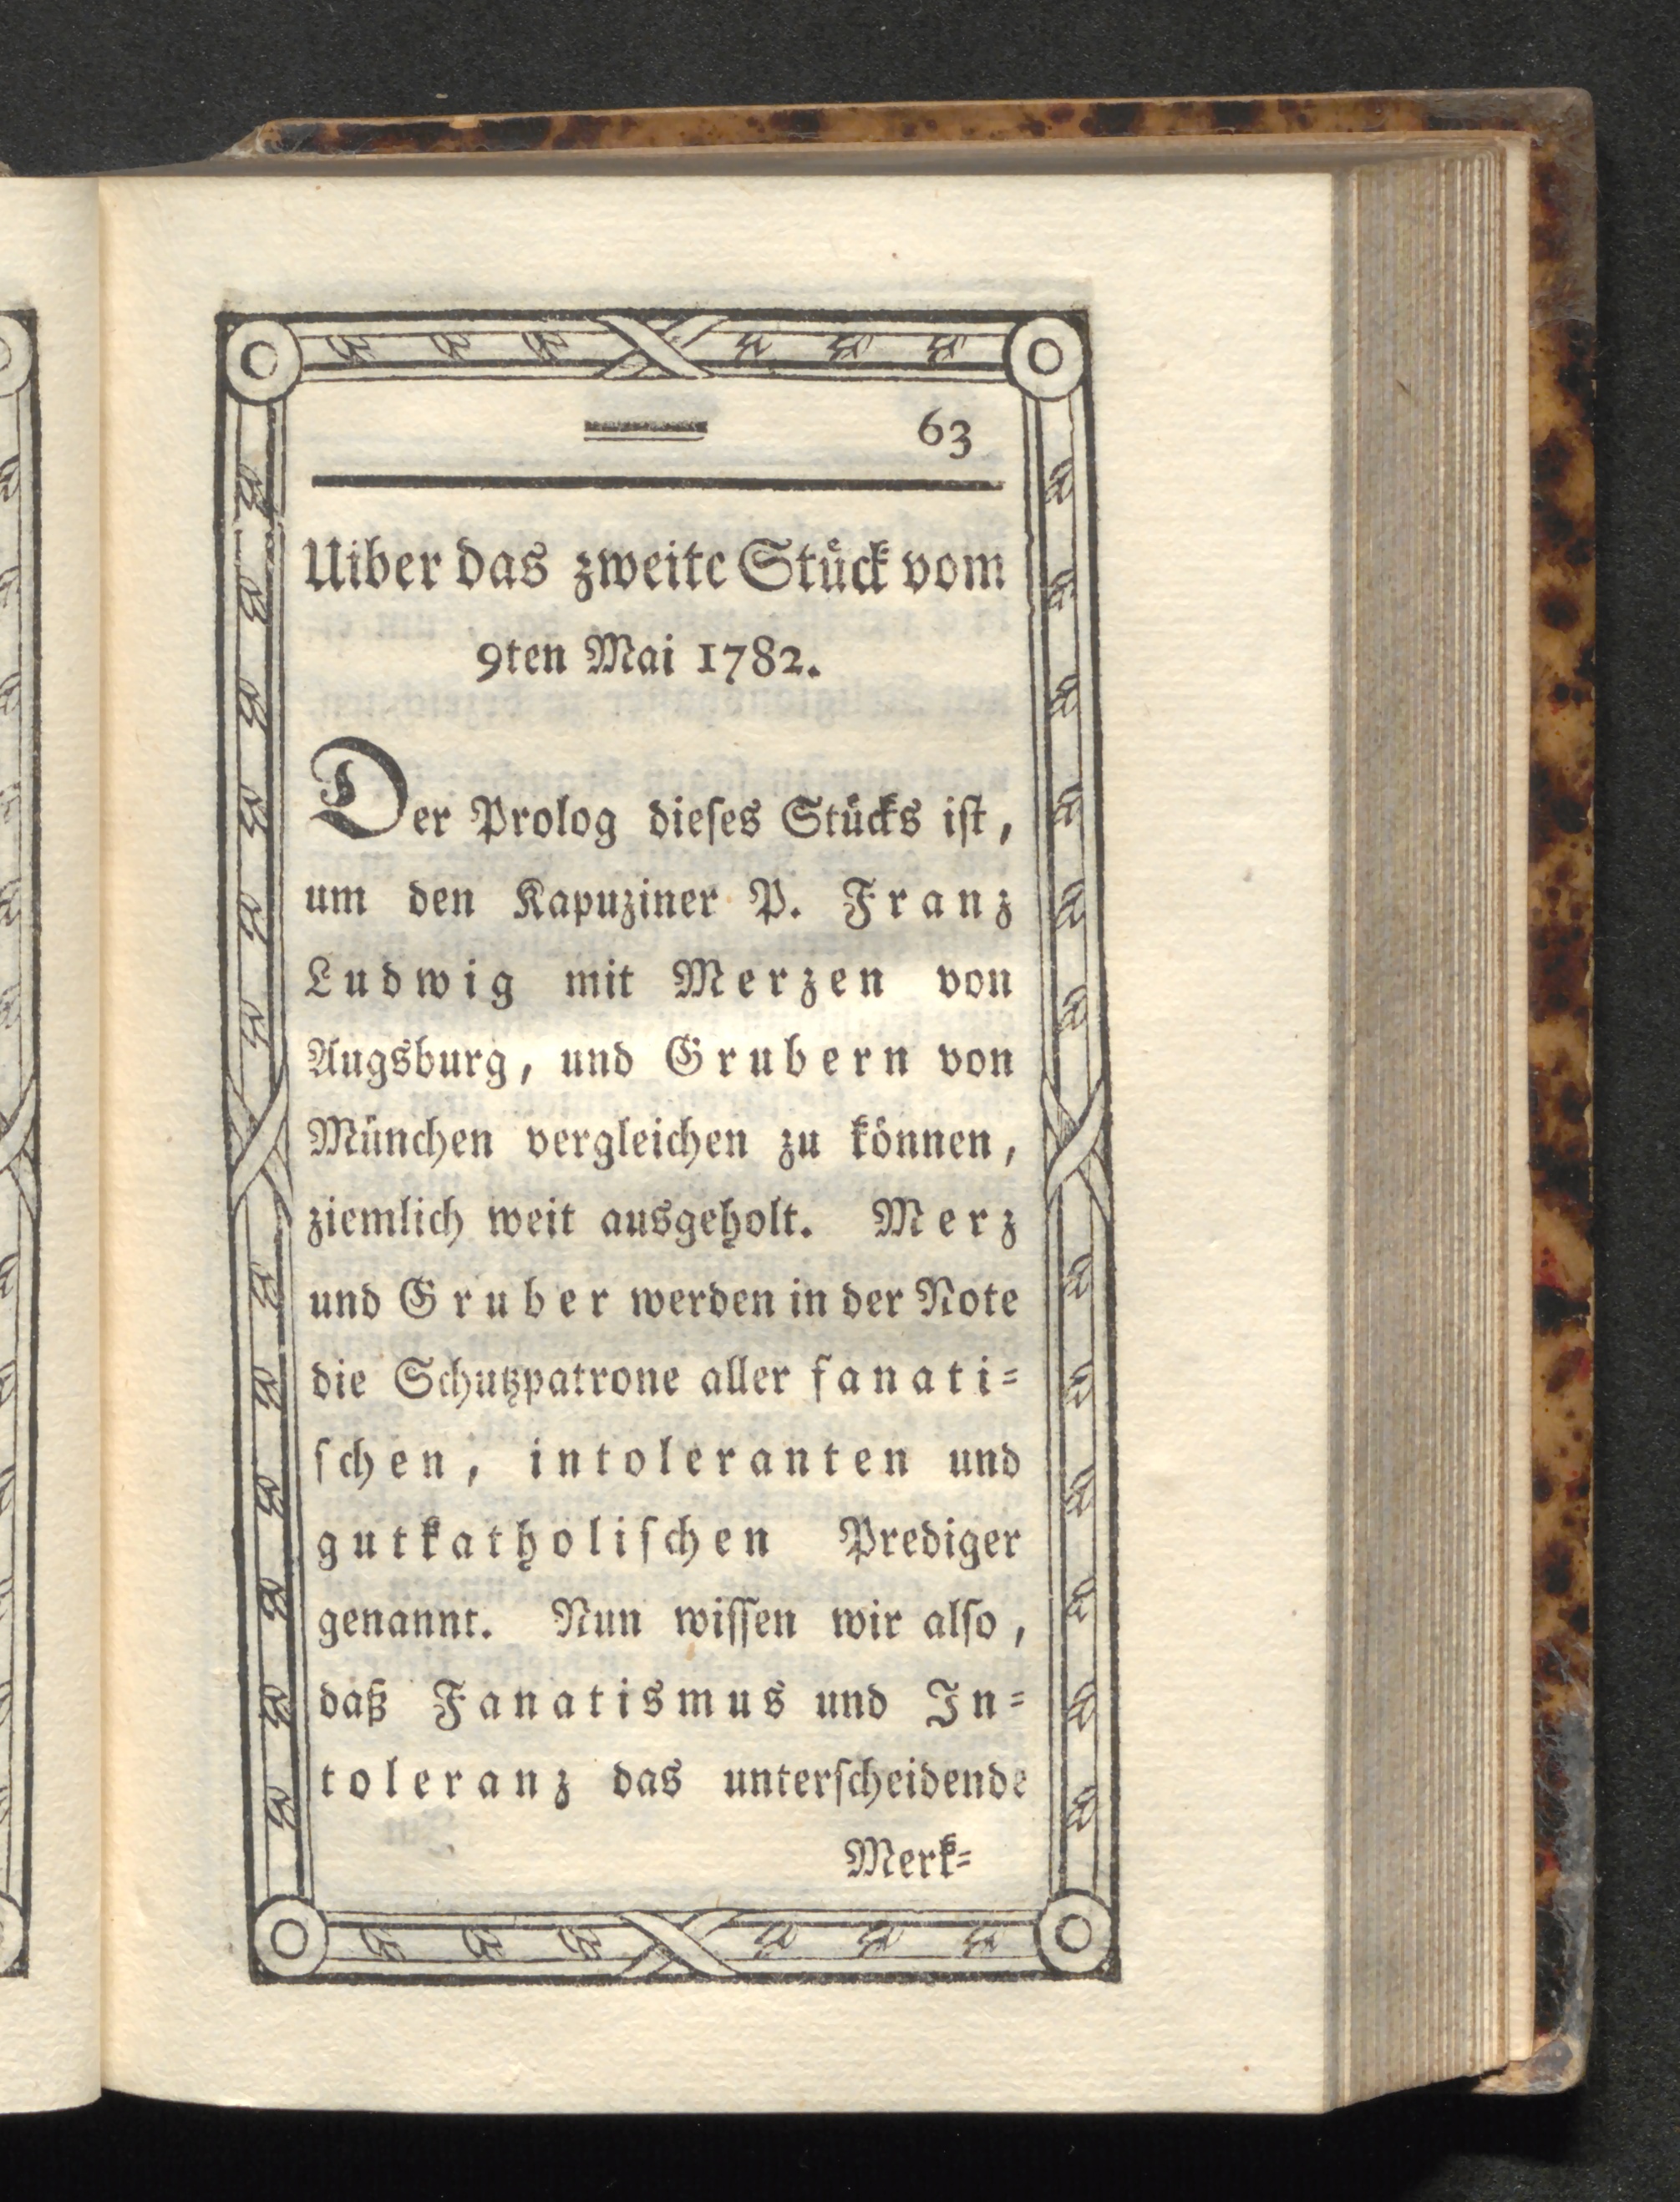 63
Uiber das zweite Stück vom
9ten Mai 1782.
Der Prolog dieſes Stücks iſt,
um den Kapuziner P. Franz
Ludwig mit Merzen von
Augsburg, und Grubern von
München vergleichen zu können,
ziemlich weit ausgeholt. Merz
und Gruber werden in der Note
die Schutzpatrone aller fanati=
ſchen, intoleranten und
gutkatholiſchen Prediger
genannt. Nun wiſſen wir alſo,
daß Fanatismus und In=
toleranz das unterſcheidende
Merk=